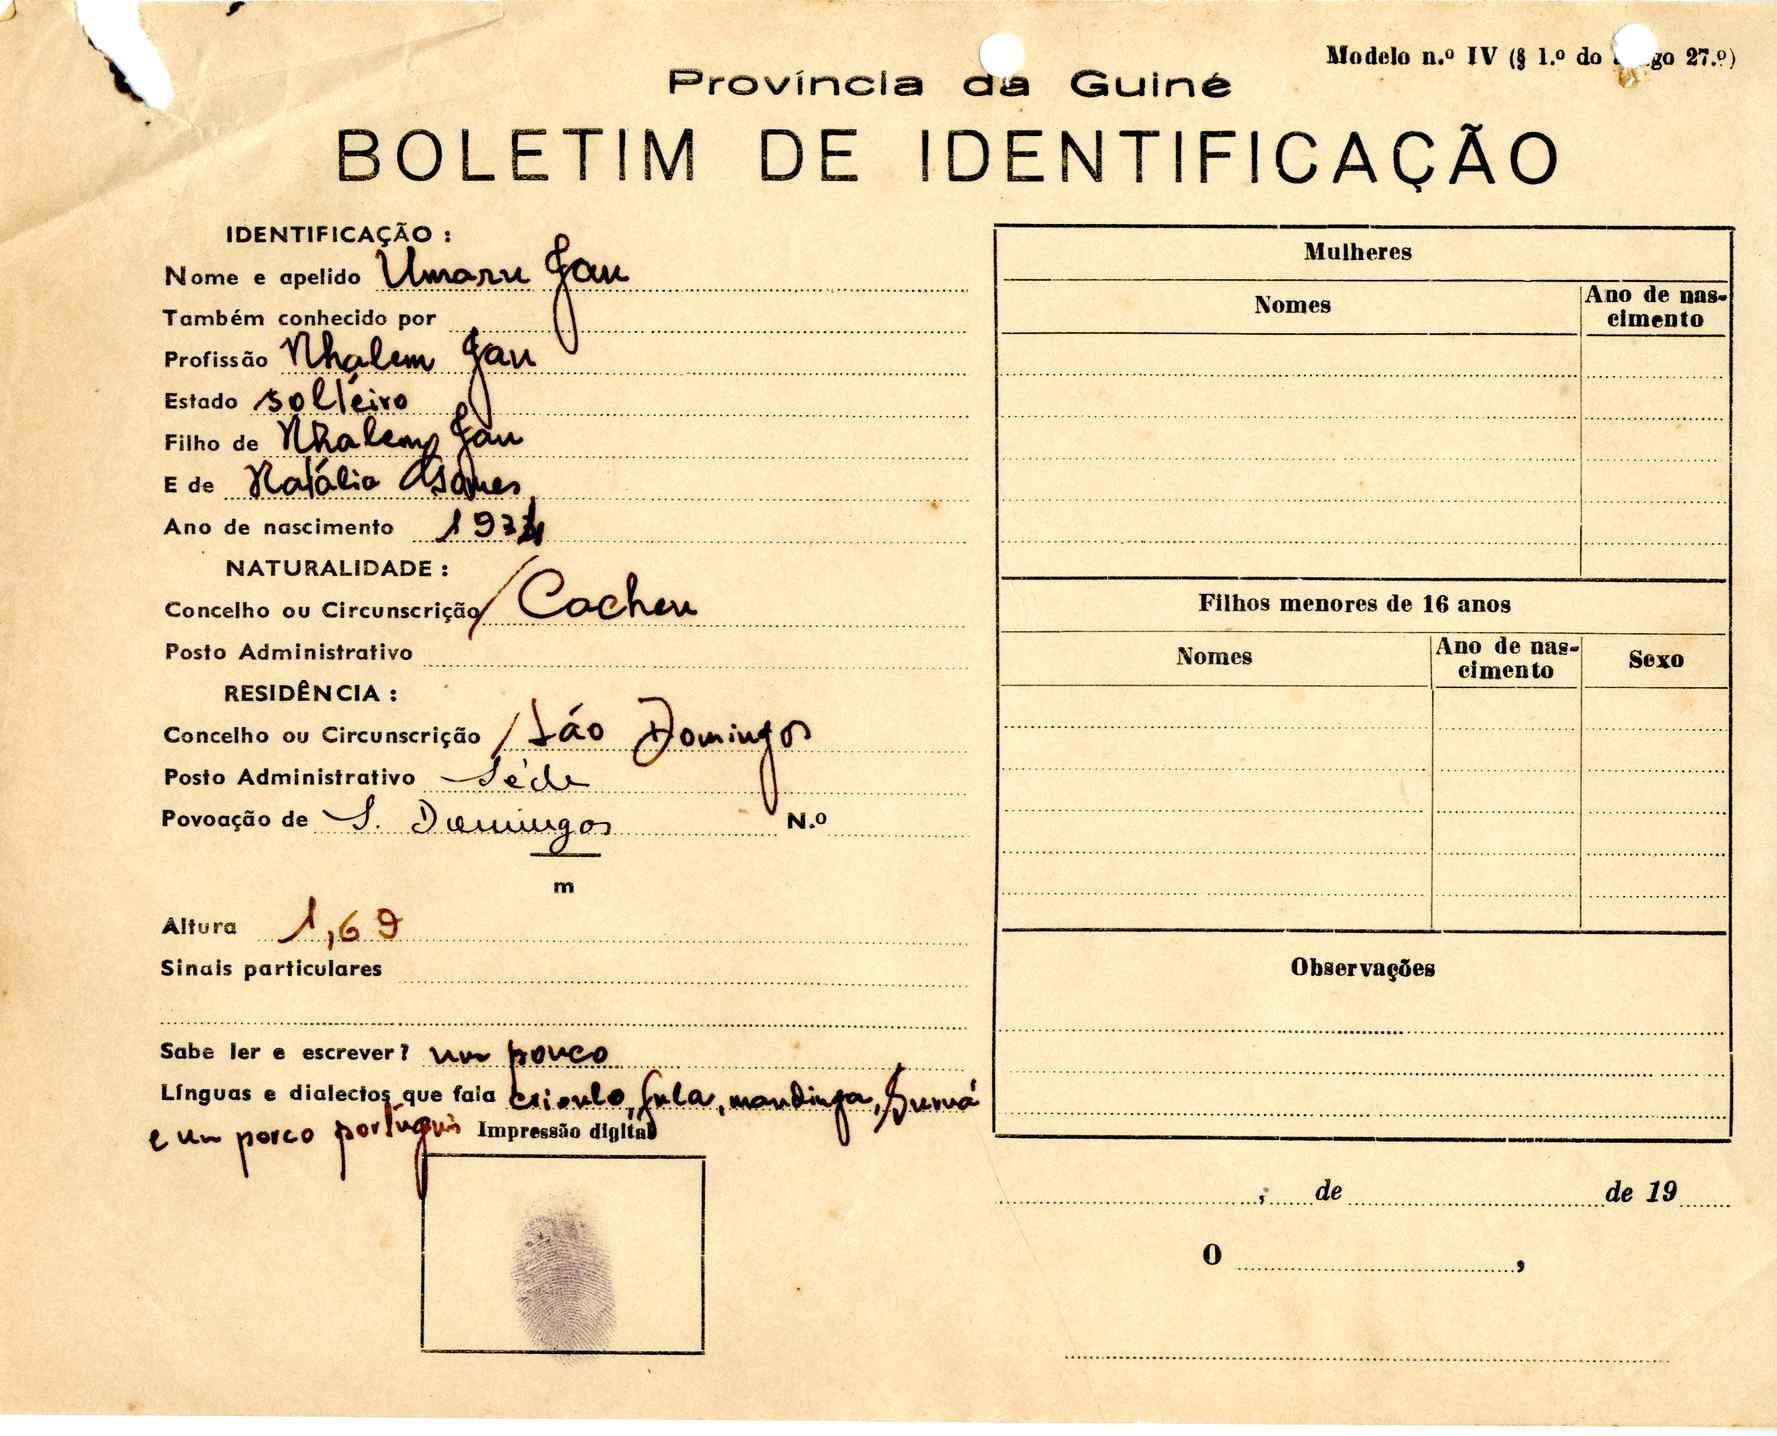 Modelo n.º IV (§ 1.º do go 27.º)
Província da Guiné
BOLETIM DE IDENTIFICAÇÃO
IDENTIFICAÇÃO :
Nome e apelido Umaru Jau
Também conhecido por
Profissão Nhalem Jau
Estado soltéiro
Filho de Nhalem Jau
E de Natália Gomes
Ano de nascimento
NATURALIDADE :
Concelho ou Circunscrição / Cacheu
Posto Administrativo
RESIDÊNCIA :
Concelho ou Circunscrição / São Domingos
Posto Administrativo Séde
Povoação de S. Domingos N.º
m
Altura 1,69
Sinais particulares
Sabe ler e escrever? um pouco
Línguas e dialectos que fala crioulo, fula, mandinga,
e um pouco portugues
Impressão digital
Mulheres
Nomes
Ano de nas-
cimento
Filhos menores de 16 anos
Nomes
Ano de nas-
cimento
Sexo
Observações
, de de 19
O ,